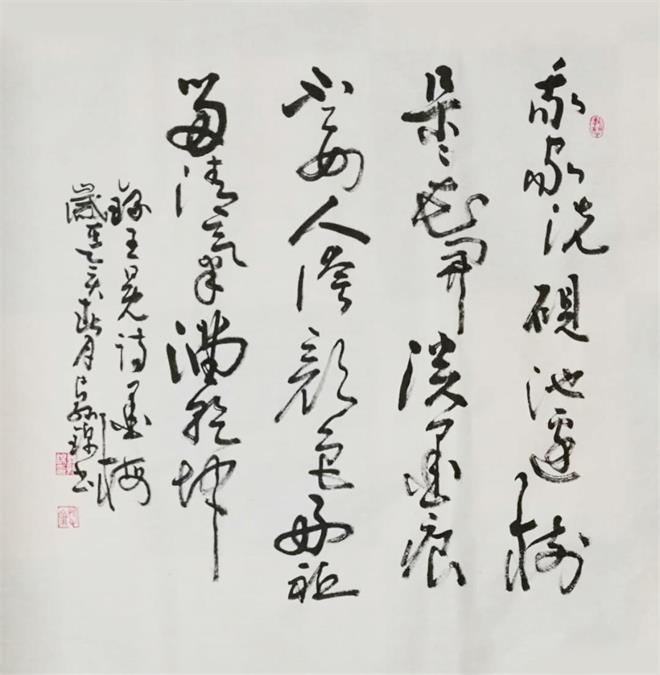 我家洗硯池邊樹
朵々花開淡墨痕
不要人誇顏色好祗
留清氣滿乾坤
錄王冕詩墨梅
歲在乙亥秋月書